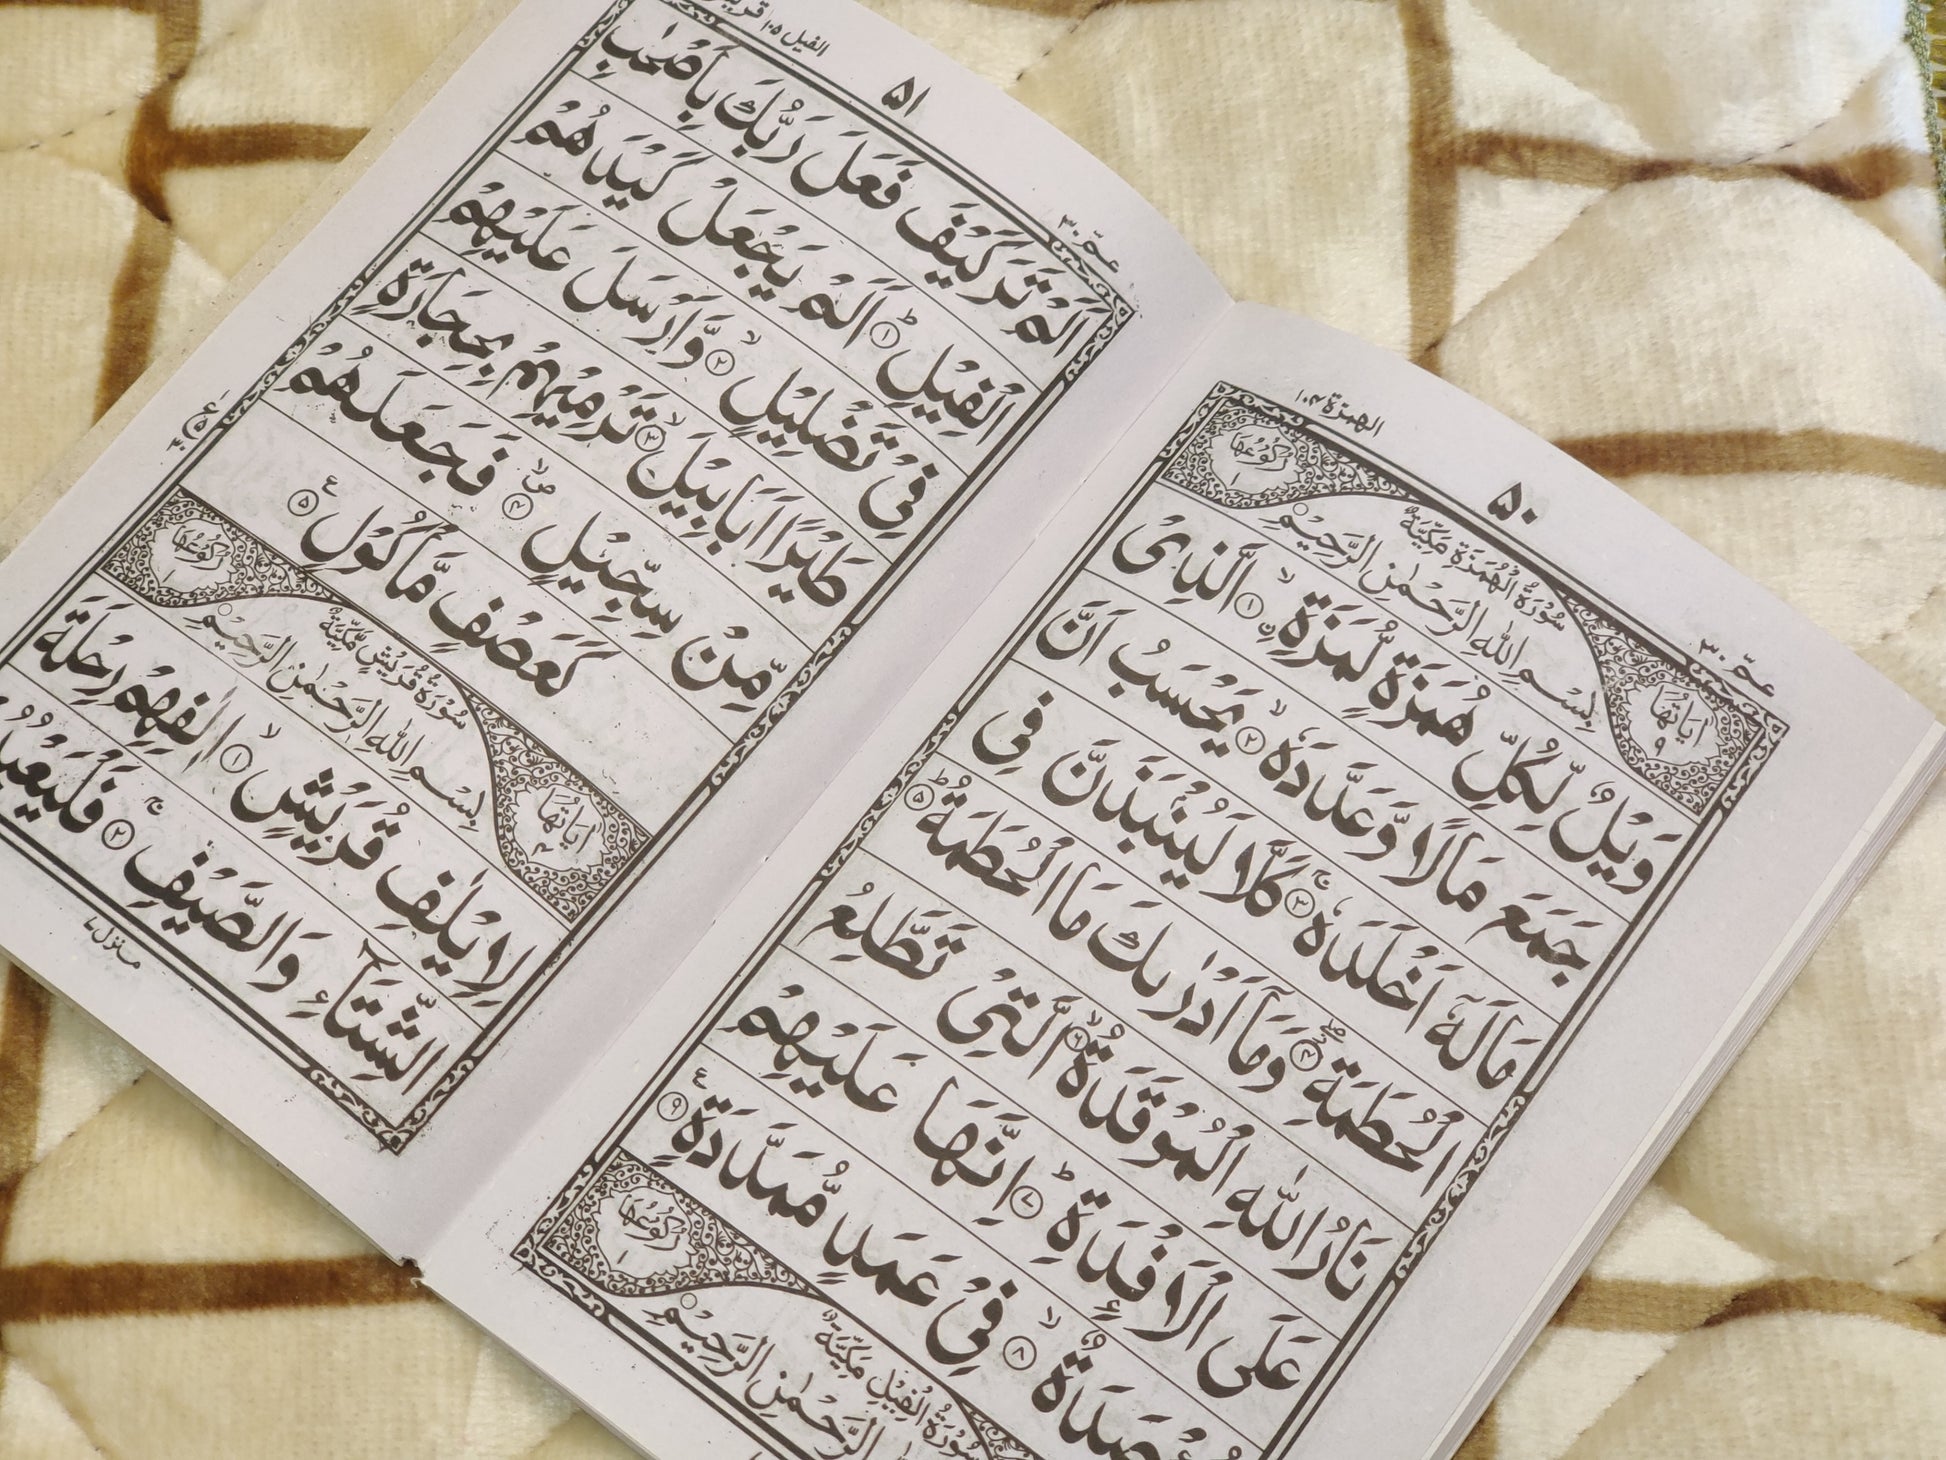 الهمزة ١٠٤
٥٠
عمّ ٣٠
اٰيَاتُهَا ٩
سُوْرَةُ الْهُمَزَةِ مَكِّيَّةٌ
رُكُوْعُهَا ١
بِسْمِ اللّٰهِ الرَّحْمٰنِ الرَّحِيْمِ
وَيْلٌ لِّكُلِّ هُمَزَةٍ لُّمَزَةِ ۙ‏﴿١﴾ اۨلَّذِىْ
جَمَعَ مَالًا وَّعَدَّدَهٗ ۙ‏﴿٢﴾ يَحْسَبُ اَنَّ
مَالَهٗۤ اَخْلَدَهٗ ۚ‏﴿٣﴾ كَلَّا لَيُنْۢبَذَنَّ فِى
الْحُطَمَةِ ۖ‏﴿٤﴾ وَمَاۤ اَدْرٰىكَ مَا الْحُطَمَةُ ؕ‏﴿٥﴾
نَارُ اللّٰهِ الْمُوْقَدَةُ ۙ‏﴿٦﴾ الَّتِىْ تَطَّلِعُ
عَلَى الْاَفْـِٕدَةِ ؕ‏﴿٧﴾ اِنَّهَا عَلَيْهِمْ
مُّؤْصَدَةٌ ۙ‏﴿٨﴾ فِىْ عَمَدٍ مُّمَدَّدَةٍ ‏﴿٩﴾
رُكُوْعُهَا ١
سُوْرَةُ الْفِيْلِ مَكِّيَّةٌ
الرَّحْمٰنِ الرَّحِيْمِ
الفيل ١٠٥
٥١
عمّ ٣٠
اَلَمْ تَرَ كَيْفَ فَعَلَ رَبُّكَ بِاَصْحٰبِ
الْفِيْلِ ؕ‏﴿١﴾ اَلَمْ يَجْعَلْ كَيْدَهُمْ
فِىْ تَضْلِيْلٍ ۙ‏﴿٢﴾ وَّاَرْسَلَ عَلَيْهِمْ
طَيْرًا اَبَابِيْلَ ۙ‏﴿٣﴾ تَرْمِيْهِمْ بِحِجَارَةٍ
مِّنْ سِجِّيْلٍ ۙ‏﴿٤﴾ فَجَعَلَهُمْ
كَعَصْفٍ مَّاْكُوْلٍ ‏﴿٥﴾
اٰيَاتُهَا ٤
سُوْرَةُ قُرَيْشٍ مَكِّيَّةٌ
رُكُوْعُهَا ١
بِسْمِ اللّٰهِ الرَّحْمٰنِ الرَّحِيْمِ
لِاِيْلٰفِ قُرَيْشٍ ۙ‏﴿١﴾ اٖلٰفِهِمْ رِحْلَةَ
الشِّتَآءِ وَالصَّيْفِ ۚ‏﴿٢﴾
منزل ٧